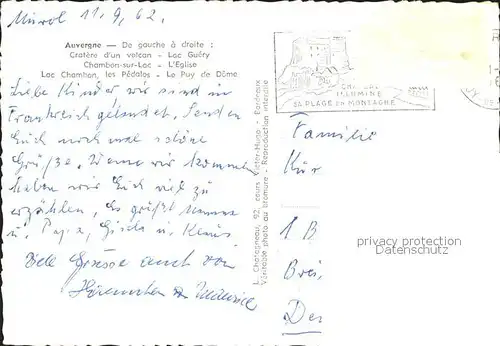 Murol 11.9.62.
Auvergne — De gauche à droite :
Cratère d'un volcan - Lac Guéry
Chambon-sur-Lac - L'Eglise
Lac Chambon, les Pédalos - Le Puy de Dôme
Liebe Kinder wir sind in
Frankreich gelandet. Senden
Euch noch mal schöne
Grüße. Wenn wir kommen
haben wir Euch viel zu
erzählen, Es grüßt Mama
u. Papa, Gisela u. Klaus
Viele Grüsse auch von
92, cours Victor-Hugo - Bordeaux
Véritable photo au bromure - Reproduction interdite
CHATEAU
ILLUMINE
SA PLAGE EN MONTAGNE
Familie
Kür
1 B
Brei
Der
privacy protection
Datenschutz